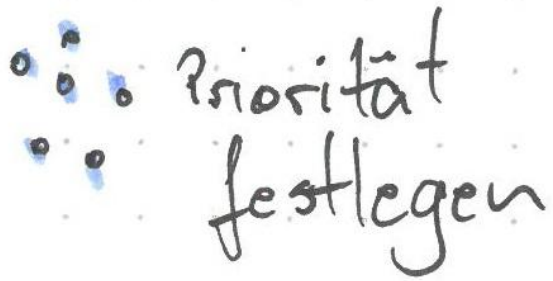 Priorität
festlegen